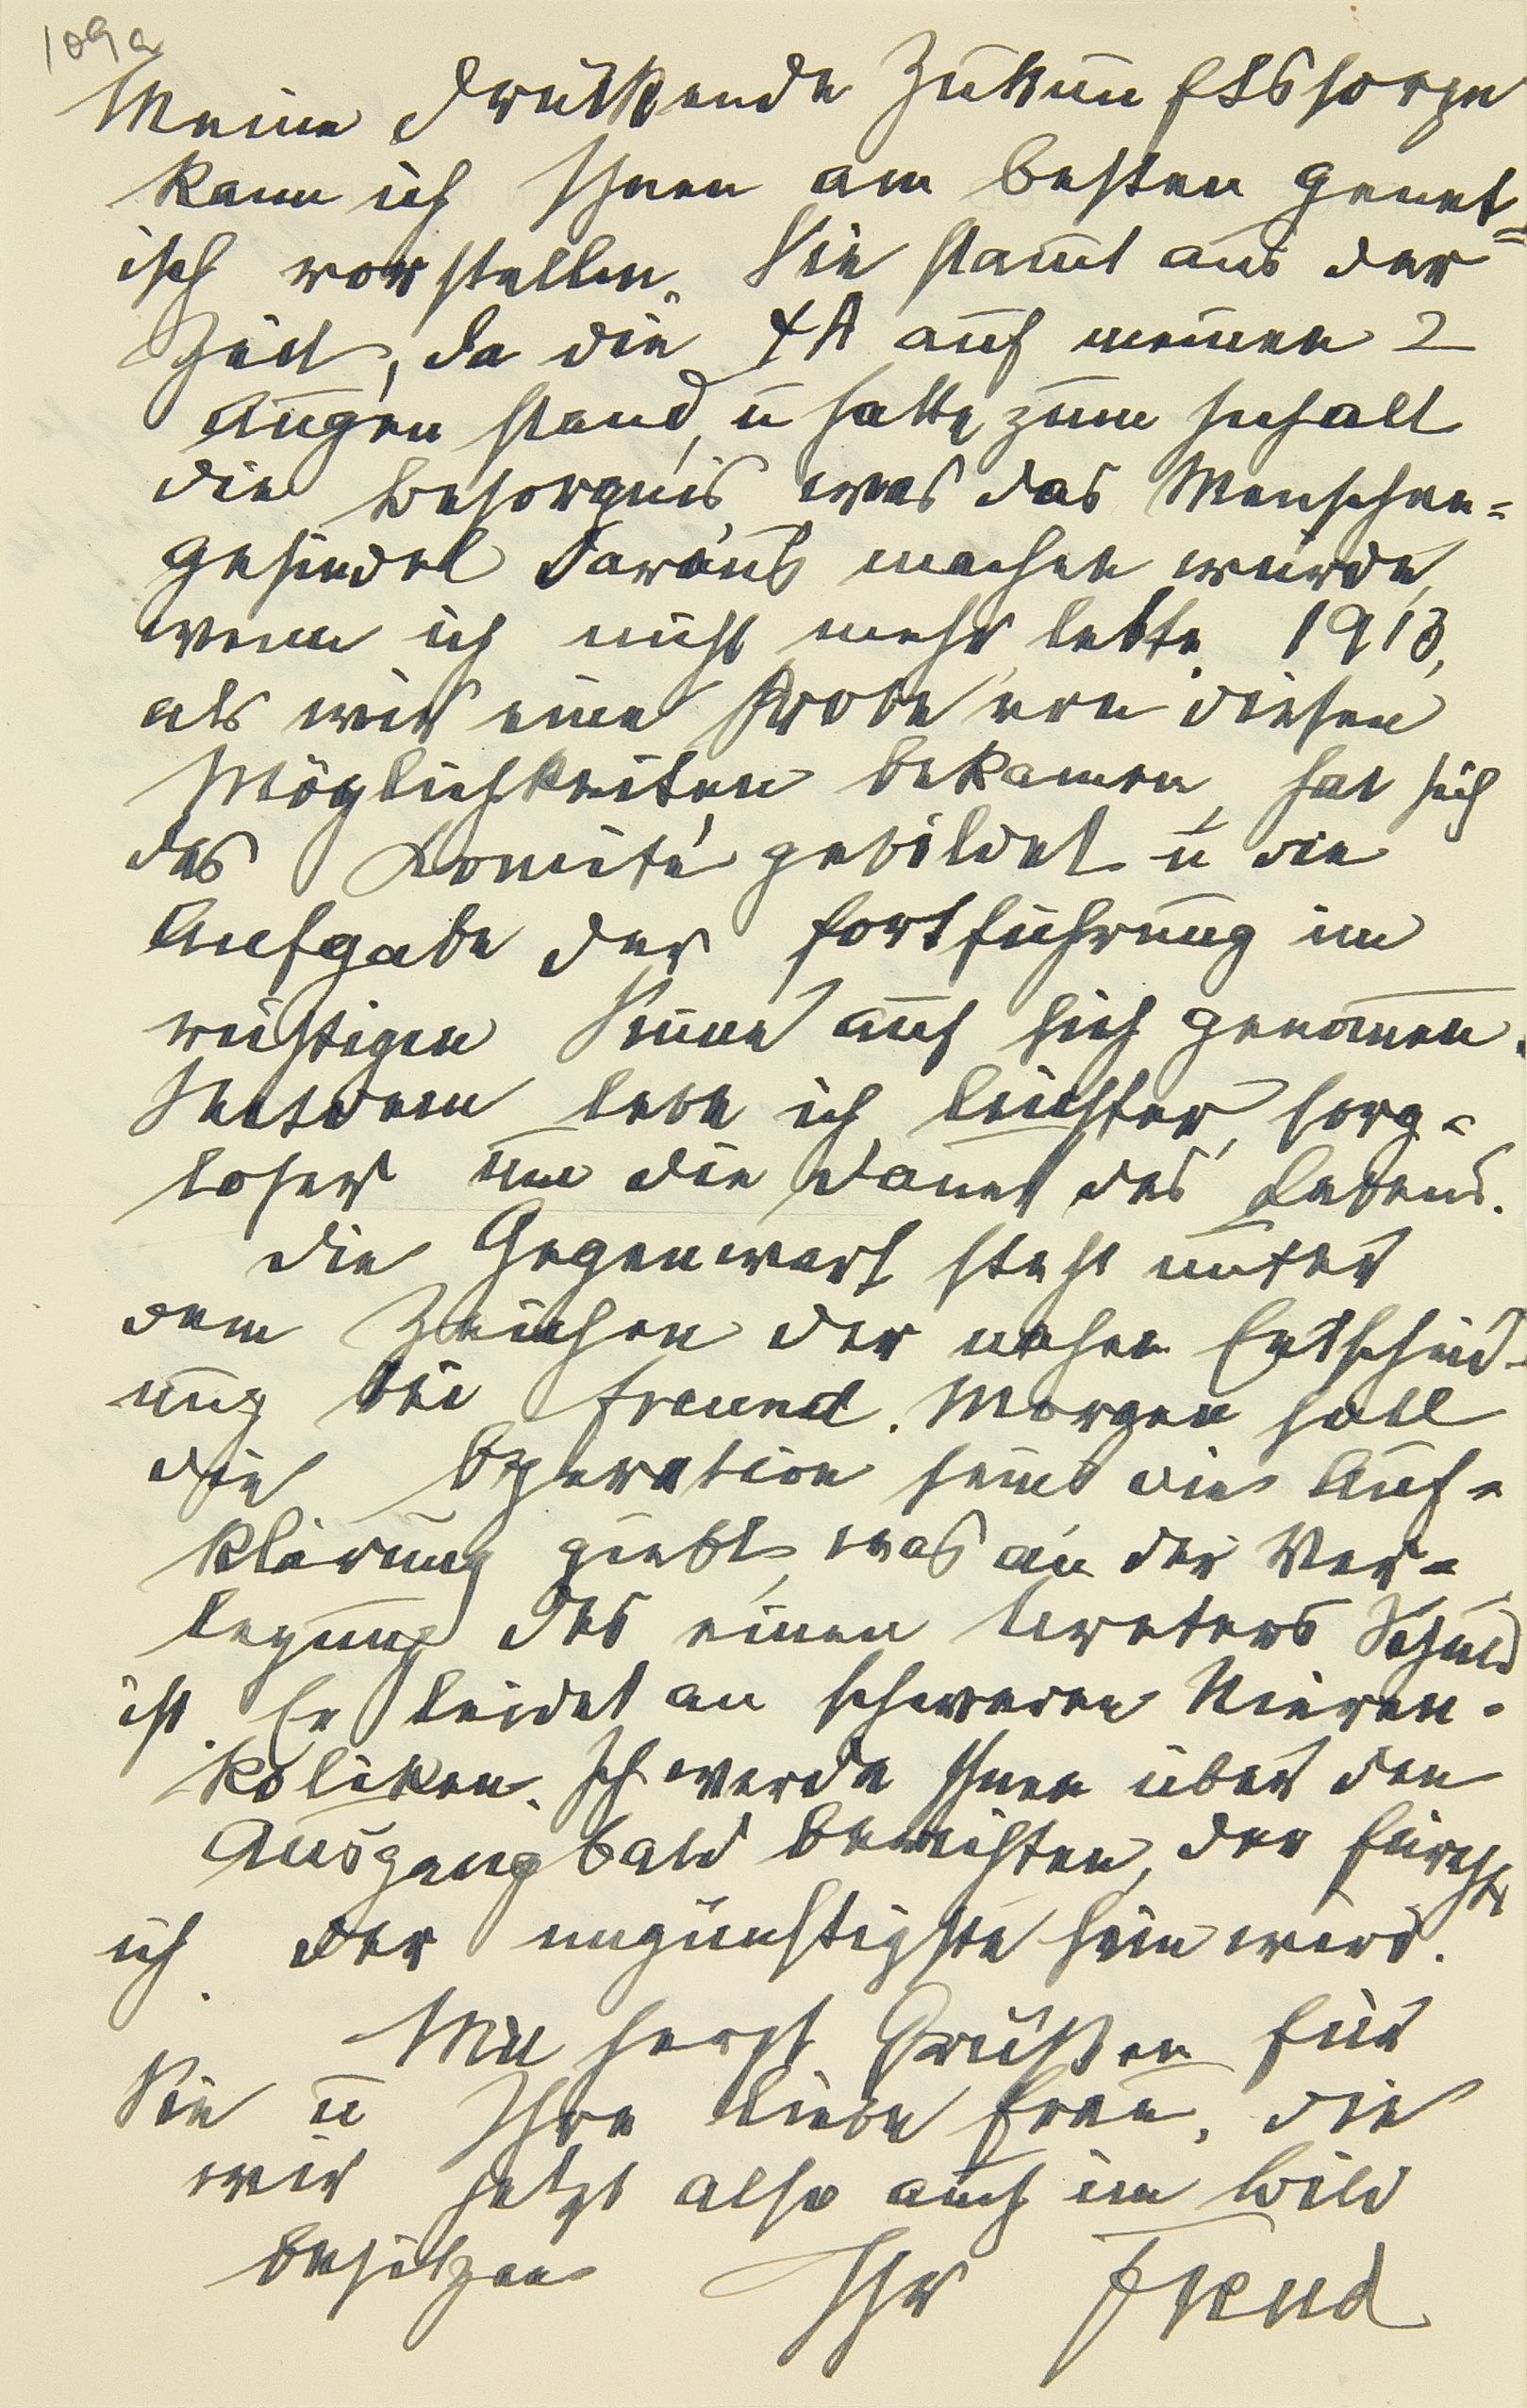 109a
Meine drückende Zukunftssorge
kann ich Ihnen am besten genet=
isch vorstellen. Sie stam̅t aus der
Zeit, da die ΨA auf meinen 2
Augen stand, u hatte zum Inhalt
die Besorgnis, was das Menschen=
gesindel daraus machen würde,
wenn ich nicht mehr lebte. 1913,
als wir eine Probe von diesen
Möglichkeiten bekamen, hat sich
das Komité gebildet u die
Aufgabe der Fortführung im
richtigen Sinne auf sich genom̅en.
Seitdem lebe ich leichter, sorg=
loser um die Dauer des Lebens.
Die Gegenwart steht unter
dem Zeichen der nahen Entscheid-
ung bei Freund. Morgen soll
die Operation sein, die Auf=
klärung giebt, was an der Ver=
legung des einen Ureters Schuld
ist. Er leidet an schweren Nieren=
koliken. Ich werde Ihnen über den
Ausgang bald berichten, der fürchte
ich der ungünstigste sein wird.
Mit herzl Grüßen für
Sie u Ihre liebe Frau, die
wir jetzt also auch im Bild
besitzen
Ihr Freud